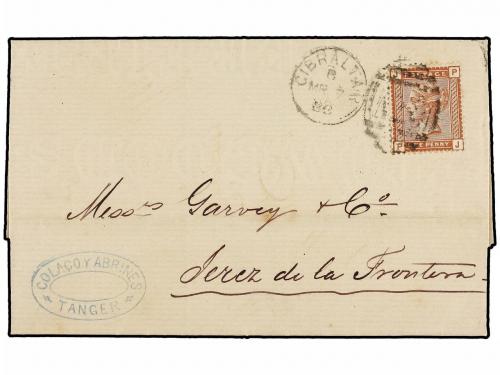 GIBRALTAR
82
P P
POSTAGE
ONE PENNY
P J
Mess.rs Garvey & Co.
Jerez de la Frontera
COLAÇO Y ABRINES
TANGER